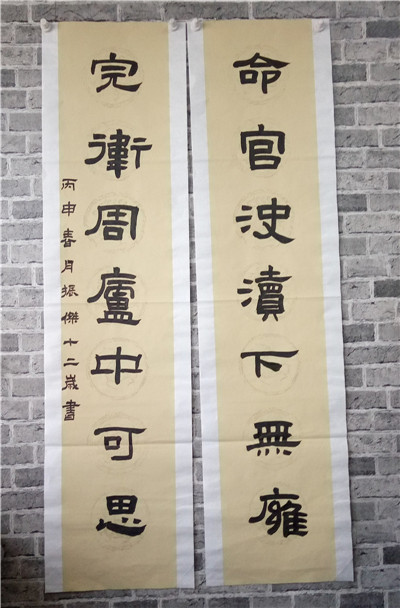 命官決瀆下無雍
完衛周廬中可思
丙申春月振傑十二歲書